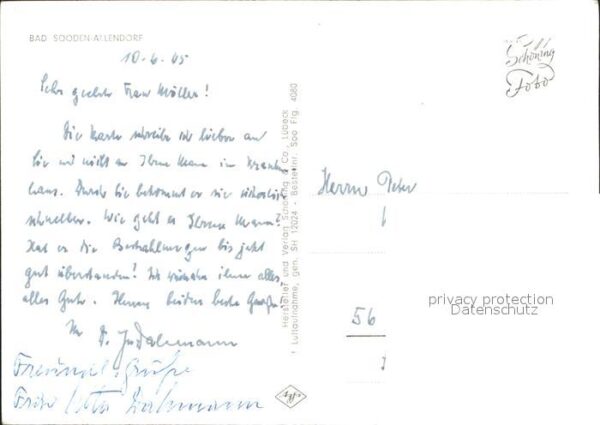 BAD SOODEN-ALLENDORF
10.6.65
Sehr geehrte Frau Möller!
Die Karte schreibe ich lieber an
Sie und nicht an Ihren Mann im Kranken-
haus. Durch Sie bekommt er sie sicherlich
schneller. Wie geht es Ihrem Mann?
Hat er die Bestrahlungen bis jetzt
gut überstanden? Wir wünschen ihm alles,
alles Gute. Ihnen beiden beste Grüße!
Ihr
Freundl. Grüße
Frau Dahmann
Hersteller und Verlag Schöning & Co., Lübeck
Luftaufnahme, gen. SH 12024 · Bestellnr. Soo Flg. 4080
Schöning
Foto
Herrn Peter
56
privacy protection
Datenschutz